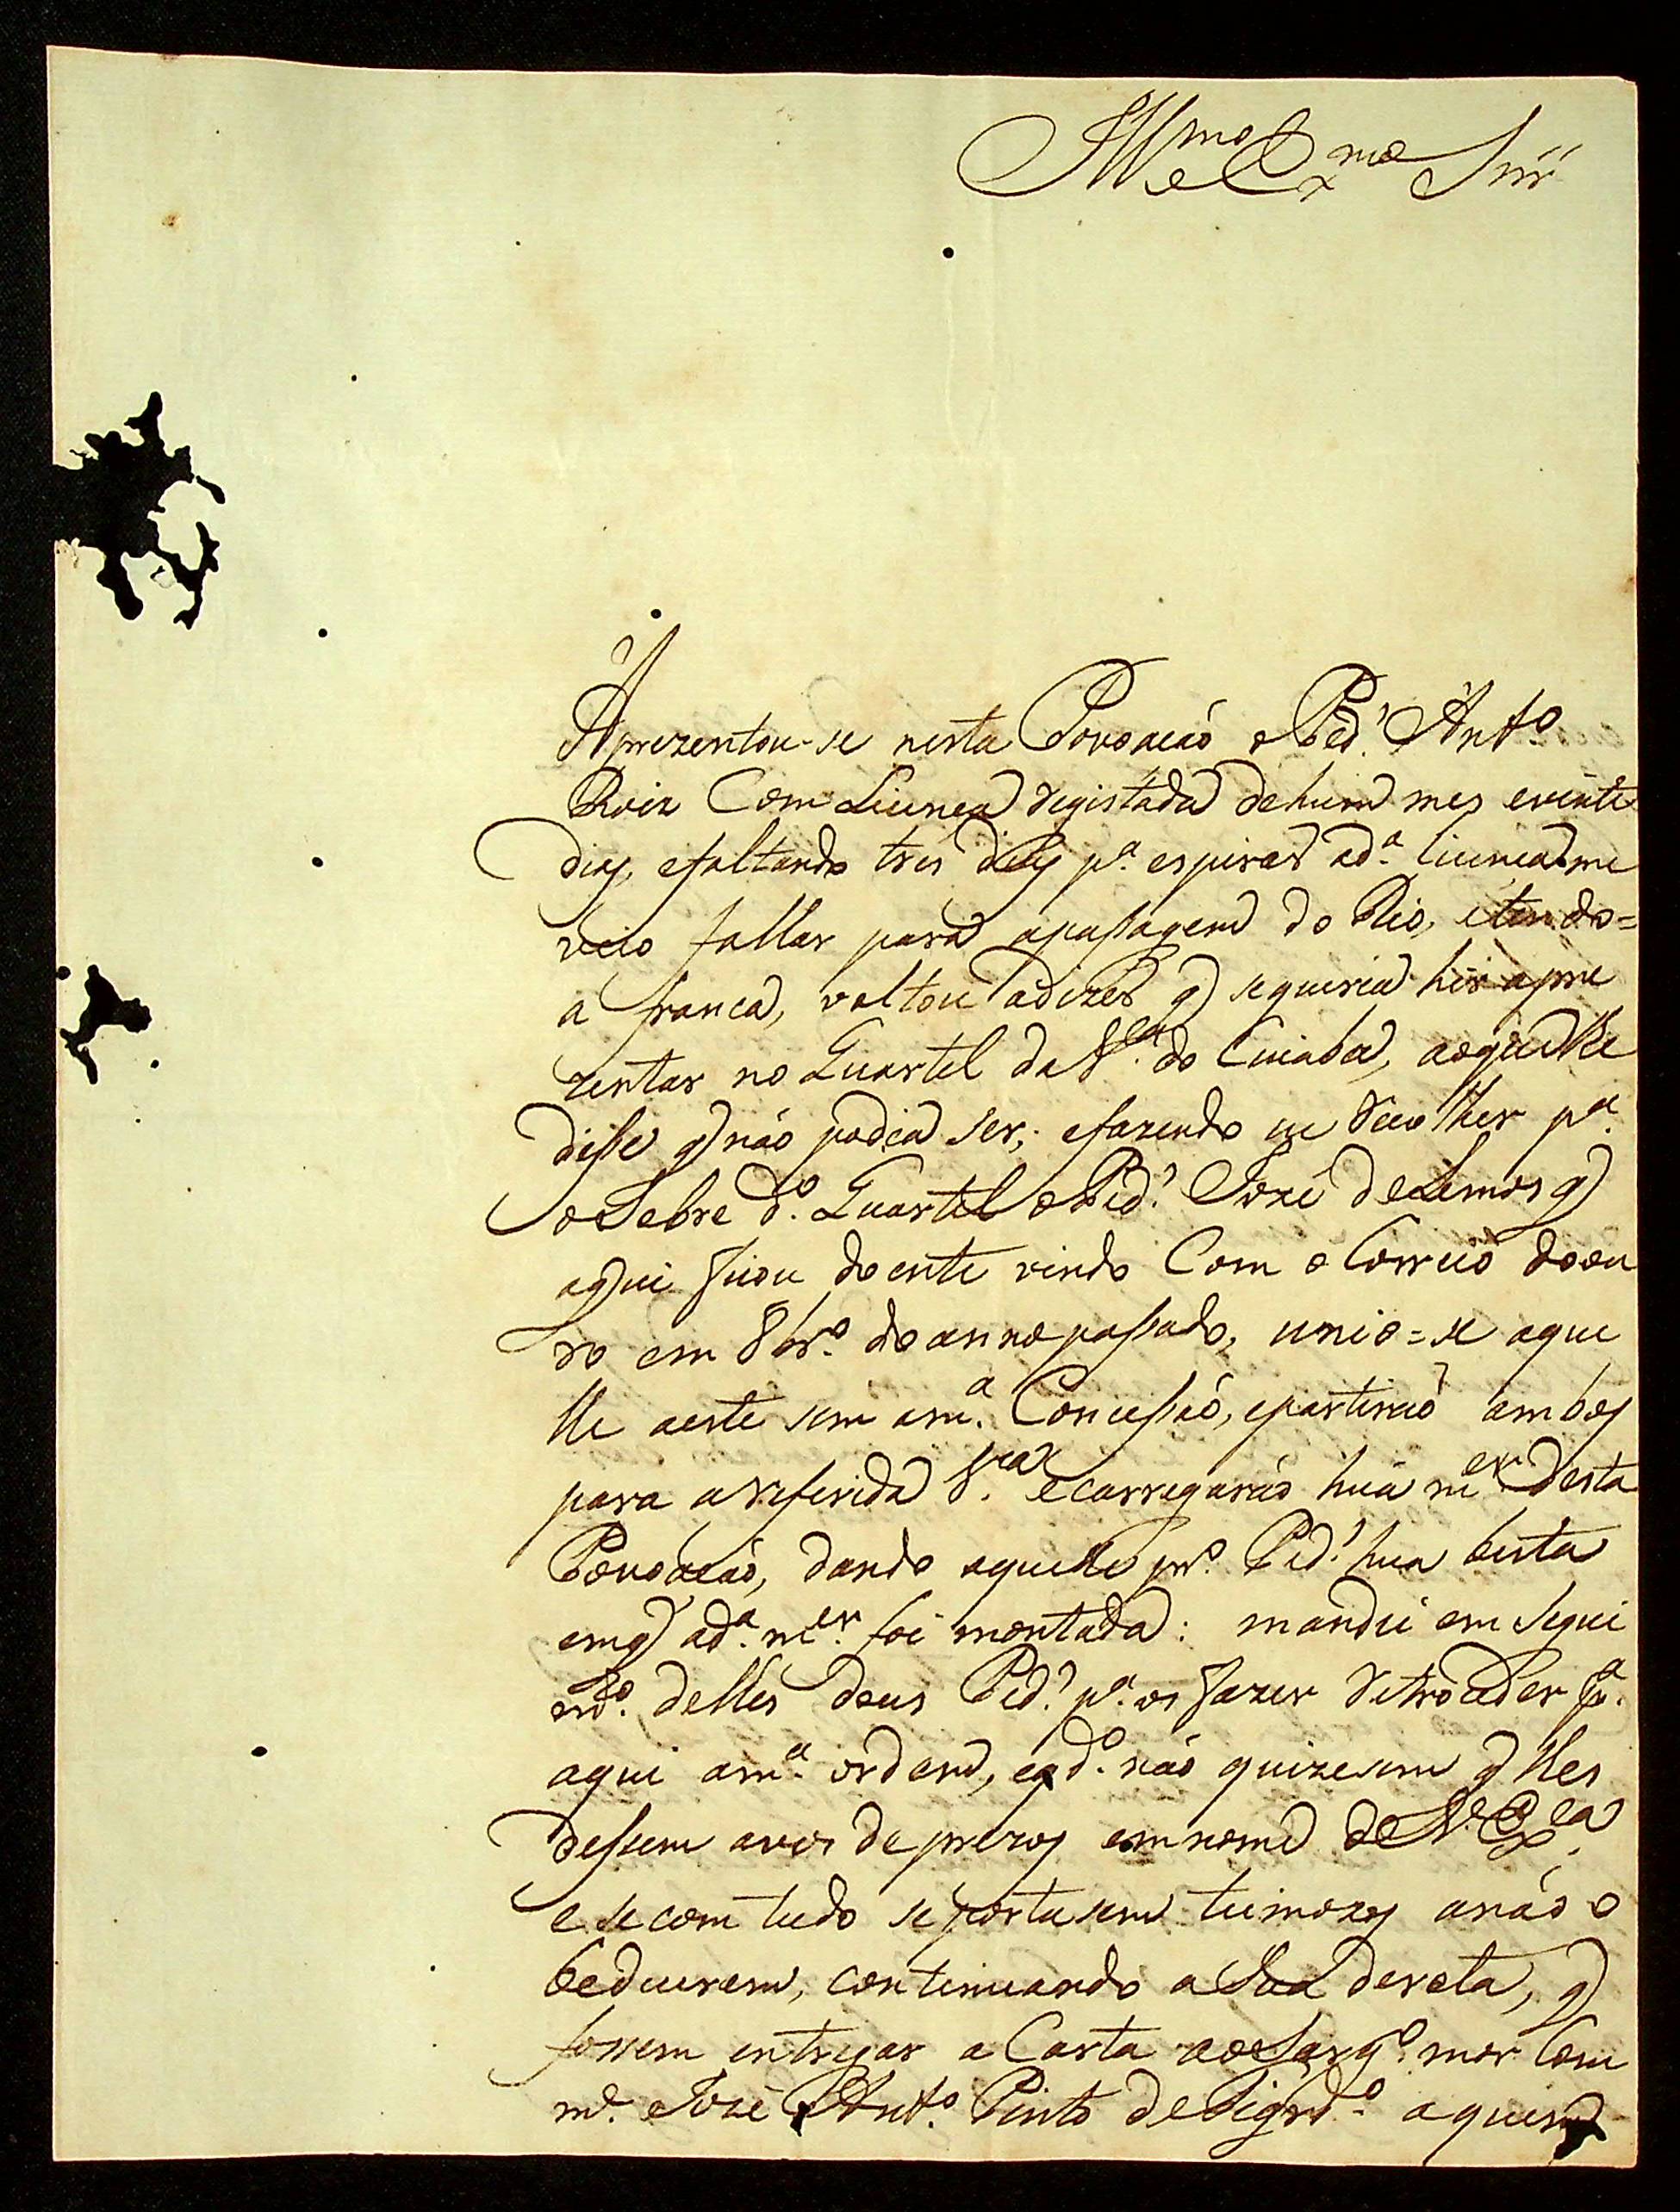 Illmo e Exmo Snr
Aprezentou-se nesta Povoacaó o Ped. Anto
Roiz Com Licenca registada de hum mes e vinte
dias, e faltando tres dias pa. espirar a da. licenca me
veio fallar para a pasagem do Rio, e tendo=
a franca, voltou a dizer q se queria hir apre
zentar no Quartel da Va. do Cuiaba, ao que lhe
disse q náo podia ser, e fazendo eu recolher pa.
o do. Quartel o Ped. Jozé de Lemos q
aqui ficou doente vindo Com o Correio do ou
ro em 8bro. do anno passado, unio=se aque
lle a este sem a ma. Concessaó, e partiraó ambos
para a referida Va. e carregaráo húa mer desta
Povoacaó, dando aquelle pro. Ped. hua besta
em q a da. mer. foi montada: mandei em segui
mto. delles dous Ped. pa. os fazer retroceder pa.
aqui a ma. ordem, e qdo. náo quizesem q lhes
dessem a vós de prezos em nome de V. Exca.
e se com tudo se portasem teimozos a náo o
bedecerem, continuando a Sua derota, q
fossem entregar a Carta ao Sargo. mor Com
me. Jozé Anto. Pinto de Figrdo. a quem